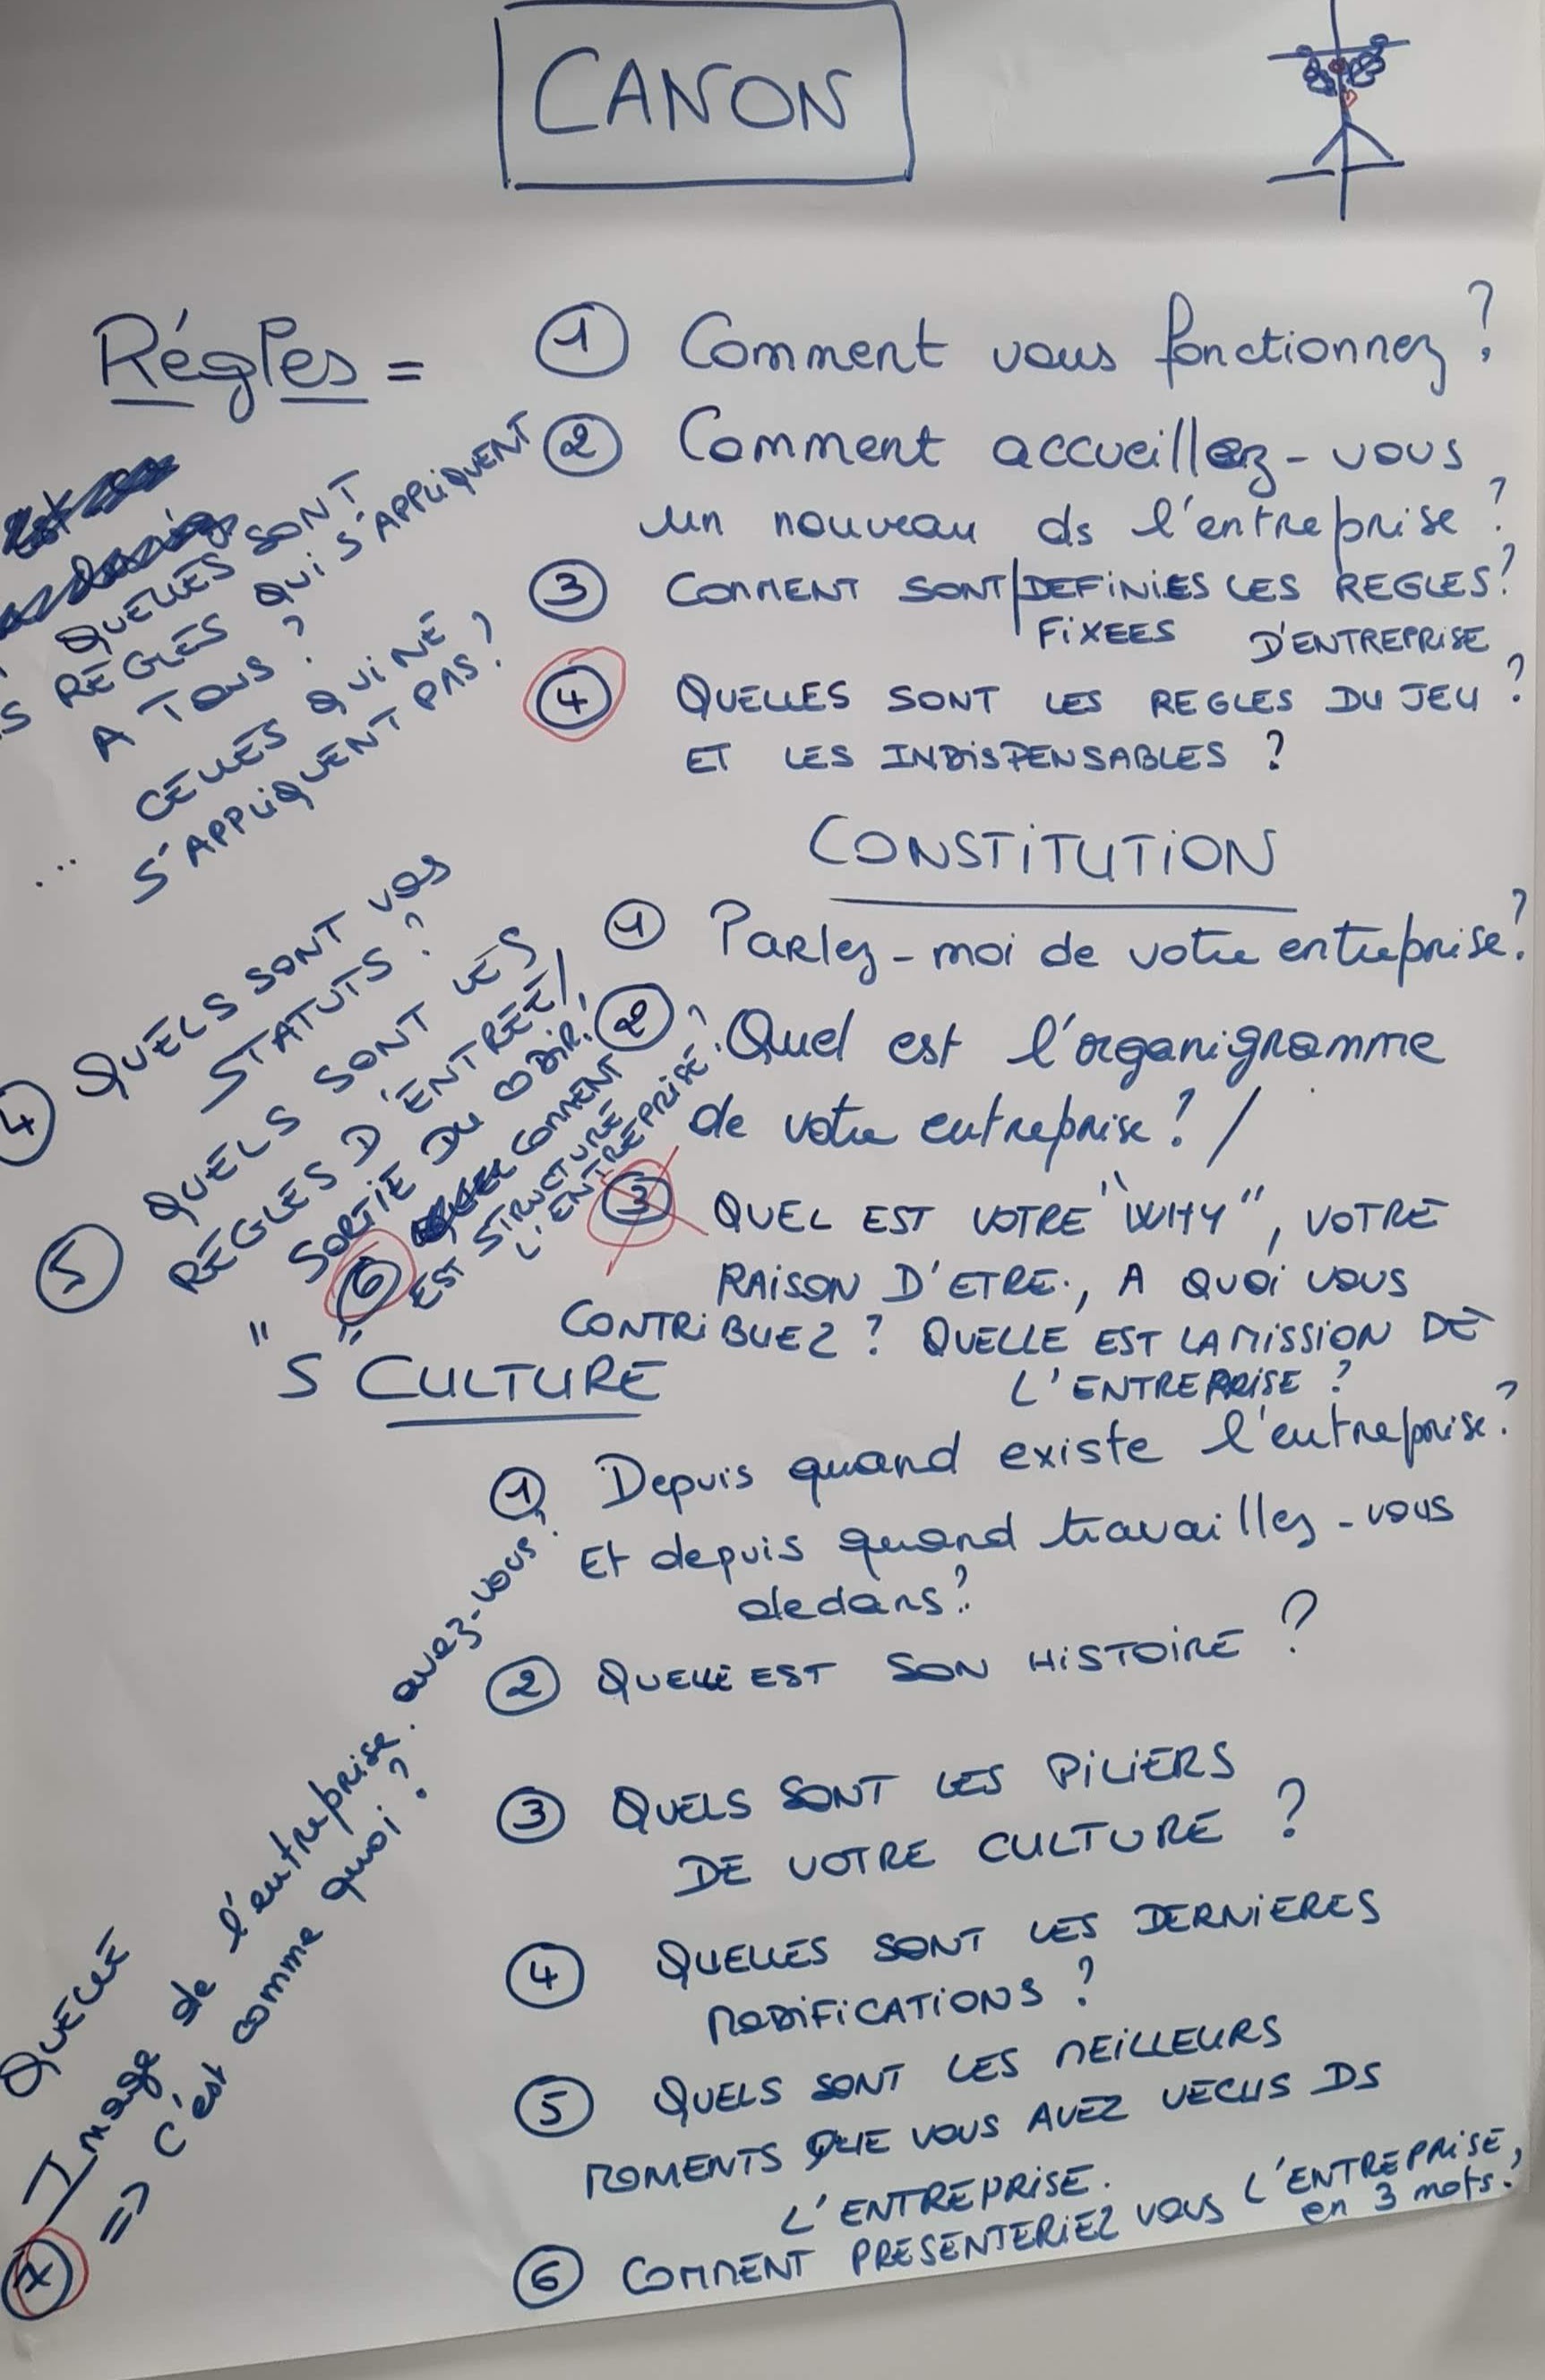 CANON
Régles =
① Comment vous fonctionnez ?
② Comment accueillez-vous
un nouveau ds l'entreprise ?
③ COMMENT SONT/DEFINIES LES REGLES?
FIXEES D'ENTREPRISE
④ QUELLES SONT LES REGLES DU JEU ?
ET LES INDISPENSABLES ?
QUELLES SONT
RÉGLES QUI S'APPLIQUENT
A TOUS ?
CELLES QUI NE
S'APPLIQUENT PAS ?
...
CONSTITUTION
① Parlez-moi de votre entreprise ?
② Quel est l'organigramme
de votre entreprise ? /
③ QUEL EST VOTRE "WHY", VOTRE
RAISON D'ETRE., A QUOI VOUS
CONTRIBUEZ ? QUELLE EST LA MISSION DE
L'ENTREPRISE ?
④ QUELS SONT VOS
STATUTS ?
⑤ QUELS SONT LES
RÉGLES D'ENTRÉE /
SORTIE DU CODIR ?
⑥ COMMENT
EST STRUCTURÉ
L'ENTREPRISE ?
"S" CULTURE
① Depuis quand existe l'entreprise ?
Et depuis quand travaillez-vous
dedans ?
② QUELLE EST SON HISTOIRE ?
③ QUELS SONT LES PILIERS
DE VOTRE CULTURE ?
④ QUELLES SONT LES DERNIERES
MODIFICATIONS ?
⑤ QUELS SONT LES MEILLEURS
MOMENTS QUE VOUS AVEZ VECUS DS
L'ENTREPRISE.
⑥ COMMENT PRESENTERIEZ VOUS L'ENTREPRISE,
en 3 mots ?
QUELLE
Image de l'entreprise avez-vous ?
=> C'est comme quoi ?